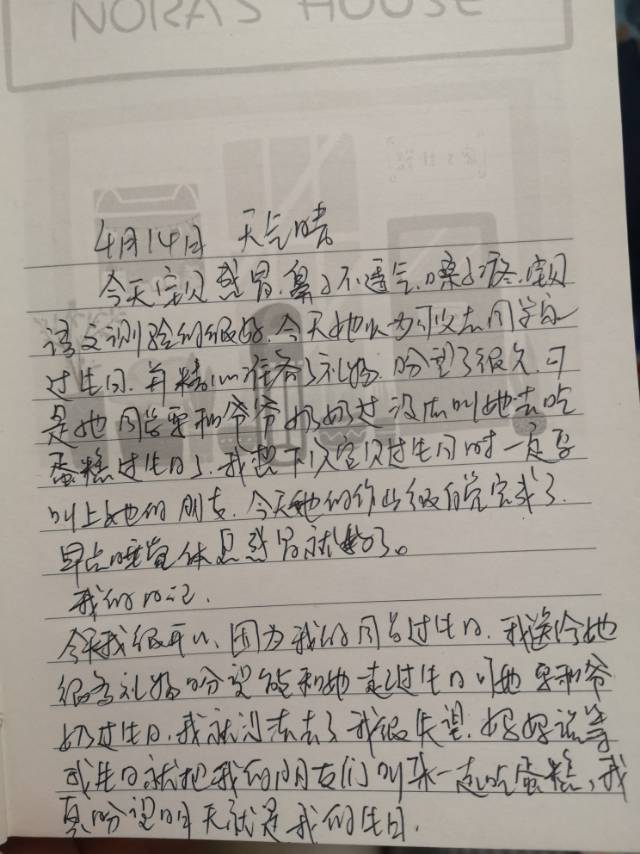 NORA'S HOUSE
4月14日 天气晴
今天宝贝感冒.鼻子不通气.嗓子疼.宝贝
语文测验的很好.今天她以为可以去同学家
过生日.并精心准备了礼物.盼望了很久.可
是她同学要和爷爷奶奶过没法叫她去吃
蛋糕过生日了.我想下次宝贝过生日时一定要
叫上她的朋友.今天她的作业很自觉完成了.
早点睡觉休息感冒就好了。
我的日记.
今天我很开心.因为我的同学过生日.我送给她
很多礼物盼望能和她一起过生日可她要和爷
奶过生日.我就没法去了我很失望.妈妈说等
我生日就把我的朋友们叫来一起吃蛋糕,我
真盼望明天就是我的生日.